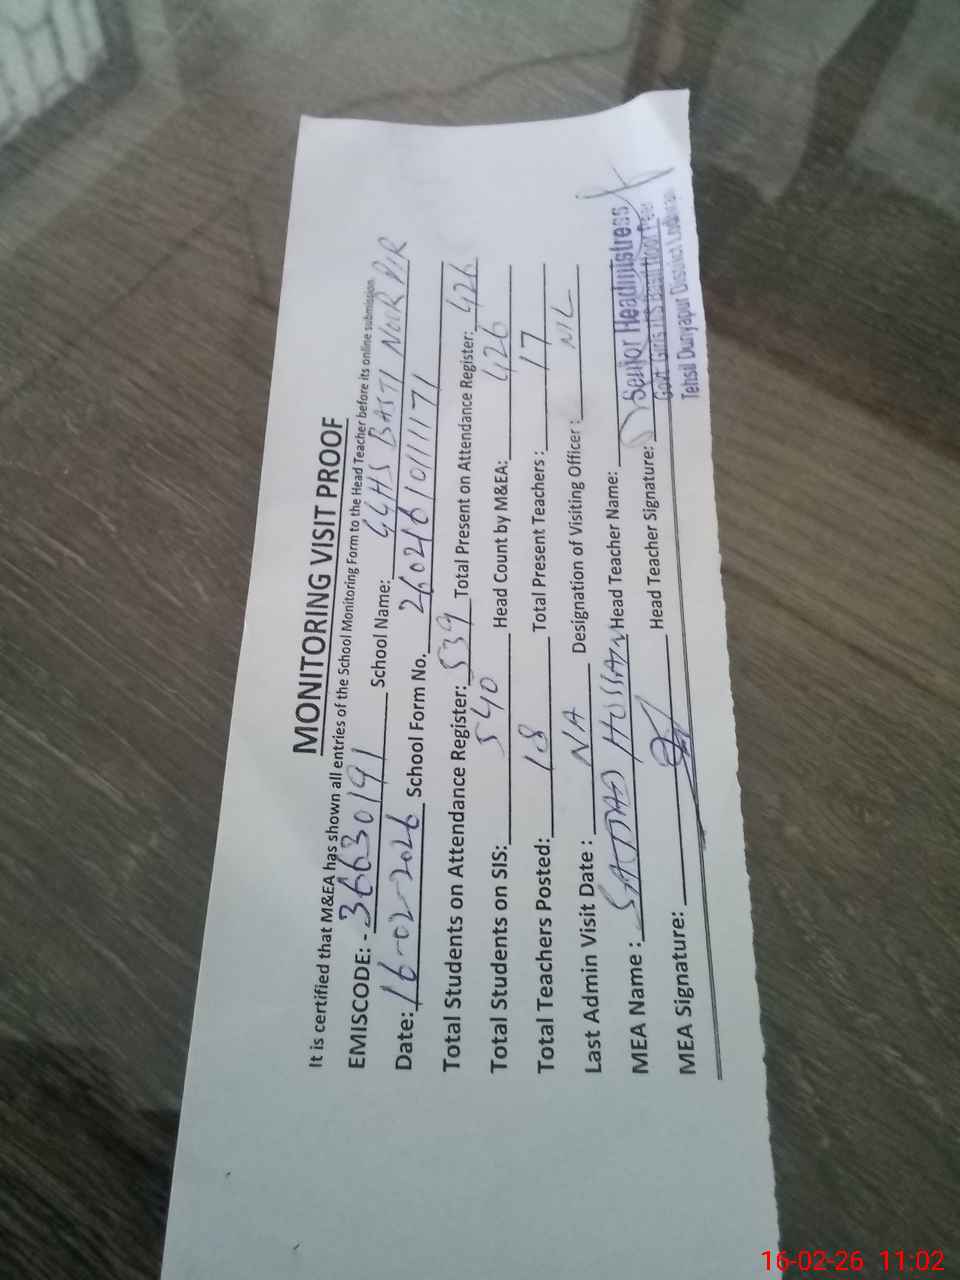 MONITORING VISIT PROOF
It is certified that M&EA has shown all entries of the School Monitoring Form to the Head Teacher before its online submission.
EMISCODE: - 36630191 School Name: GGHS BASTI NOOR PUR
Date: 16-02-2026 School Form No.
Total Students on Attendance Register: 539 Total Present on Attendance Register: 426
Total Students on SIS: 540 Head Count by M&EA: 426
Total Teachers Posted: 18 Total Present Teachers: 17
Last Admin Visit Date : NA Designation of Visiting Officer : NIL
MEA Name : SAJJAD HUSSAIN Head Teacher Name:
MEA Signature: Head Teacher Signature:
Senior Headmistress
Govt. Girls H/S Basti Noor
Tehsil Dunyapur District Lodhran
16-02-26 11:02